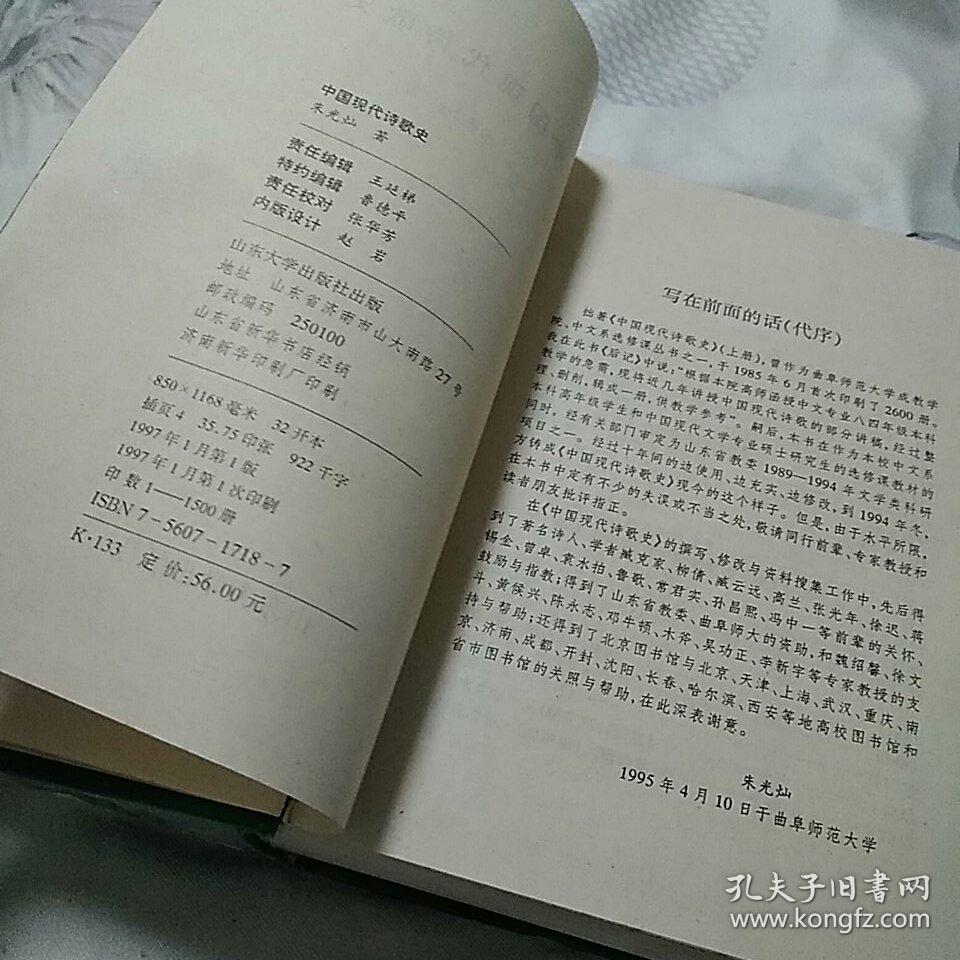 中国现代诗歌史
朱光灿 著
责任编辑 王延梯
特约编辑 鲁德平
责任校对 张华芳
内版设计 赵岩
山东大学出版社出版
地址 山东省济南市山大南路27号
邮政编码 250100
山东省新华书店经销
济南新华印刷厂印刷
850×1168毫米 32开本
插页4 35.75印张 922千字
1997年1月第1版
1997年1月第1次印刷
印数1—1500册
ISBN7-5607-1718-7
K·133 定价:56.00元
写在前面的话(代序)
拙著《中国现代诗歌史》(上册),曾作为曲阜师范大学成教学
院、中文系选修课丛书之一,于1985年6月首次印刷了2600册。
我在此书《后记》中说:“根据本院高师函授中文专业八四年级本科
教学的急需,现将近几年讲授中国现代诗歌的部分讲稿,经过整
理、删削,辑成一册,供教学参考”。嗣后,本书在作为本校中文系
本科高年级学生和中国现代文学专业硕士研究生的选修课教材的
同时,经有关部门审定为山东省教委1989—1994年文学类科研
项目之一。经过十年间的边使用、边充实、边修改,到1994年冬,
方铸成《中国现代诗歌史》现今的这个样子。但是,由于水平所限,
在本书中定有不少的失误或不当之处,敬请同行前辈、专家教授和
读者朋友批评指正。
在《中国现代诗歌史》的撰写、修改与资料搜集工作中,先后得
到了著名诗人、学者臧克家、柳倩、臧云远、高兰、张光年、徐迟、蒋
锡金、曾卓、袁水拍、鲁歌、常君实、孙昌熙、冯中一等前辈的关怀、
鼓励与指教;得到了山东省教委、曲阜师大的资助,和魏绍馨、徐文
斗、黄侯兴、陈永志、邓牛顿、木斧、吴功正、李新宇等专家教授的支
持与帮助;还得到了北京图书馆与北京、天津、上海、武汉、重庆、南
京、济南、成都、开封、沈阳、长春、哈尔滨、西安等地高校图书馆和
省市图书馆的关照与帮助,在此深表谢意。
朱光灿
1995年4月10日于曲阜师范大学
孔夫子旧書网
www.kongfz.com